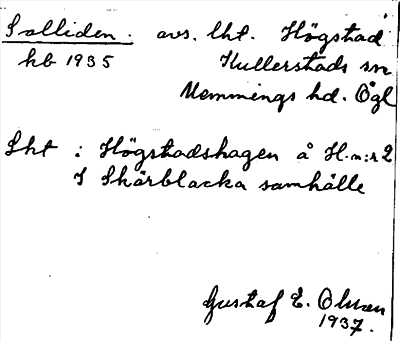 Solliden. avs. lht. Högstad
hb 1935 Kullerstads sn
Memmings hd. Ögl
Lht : Högstadshagen å H.m:r2
I Skärblacka samhälle
Gustaf E. Olsson
1937.